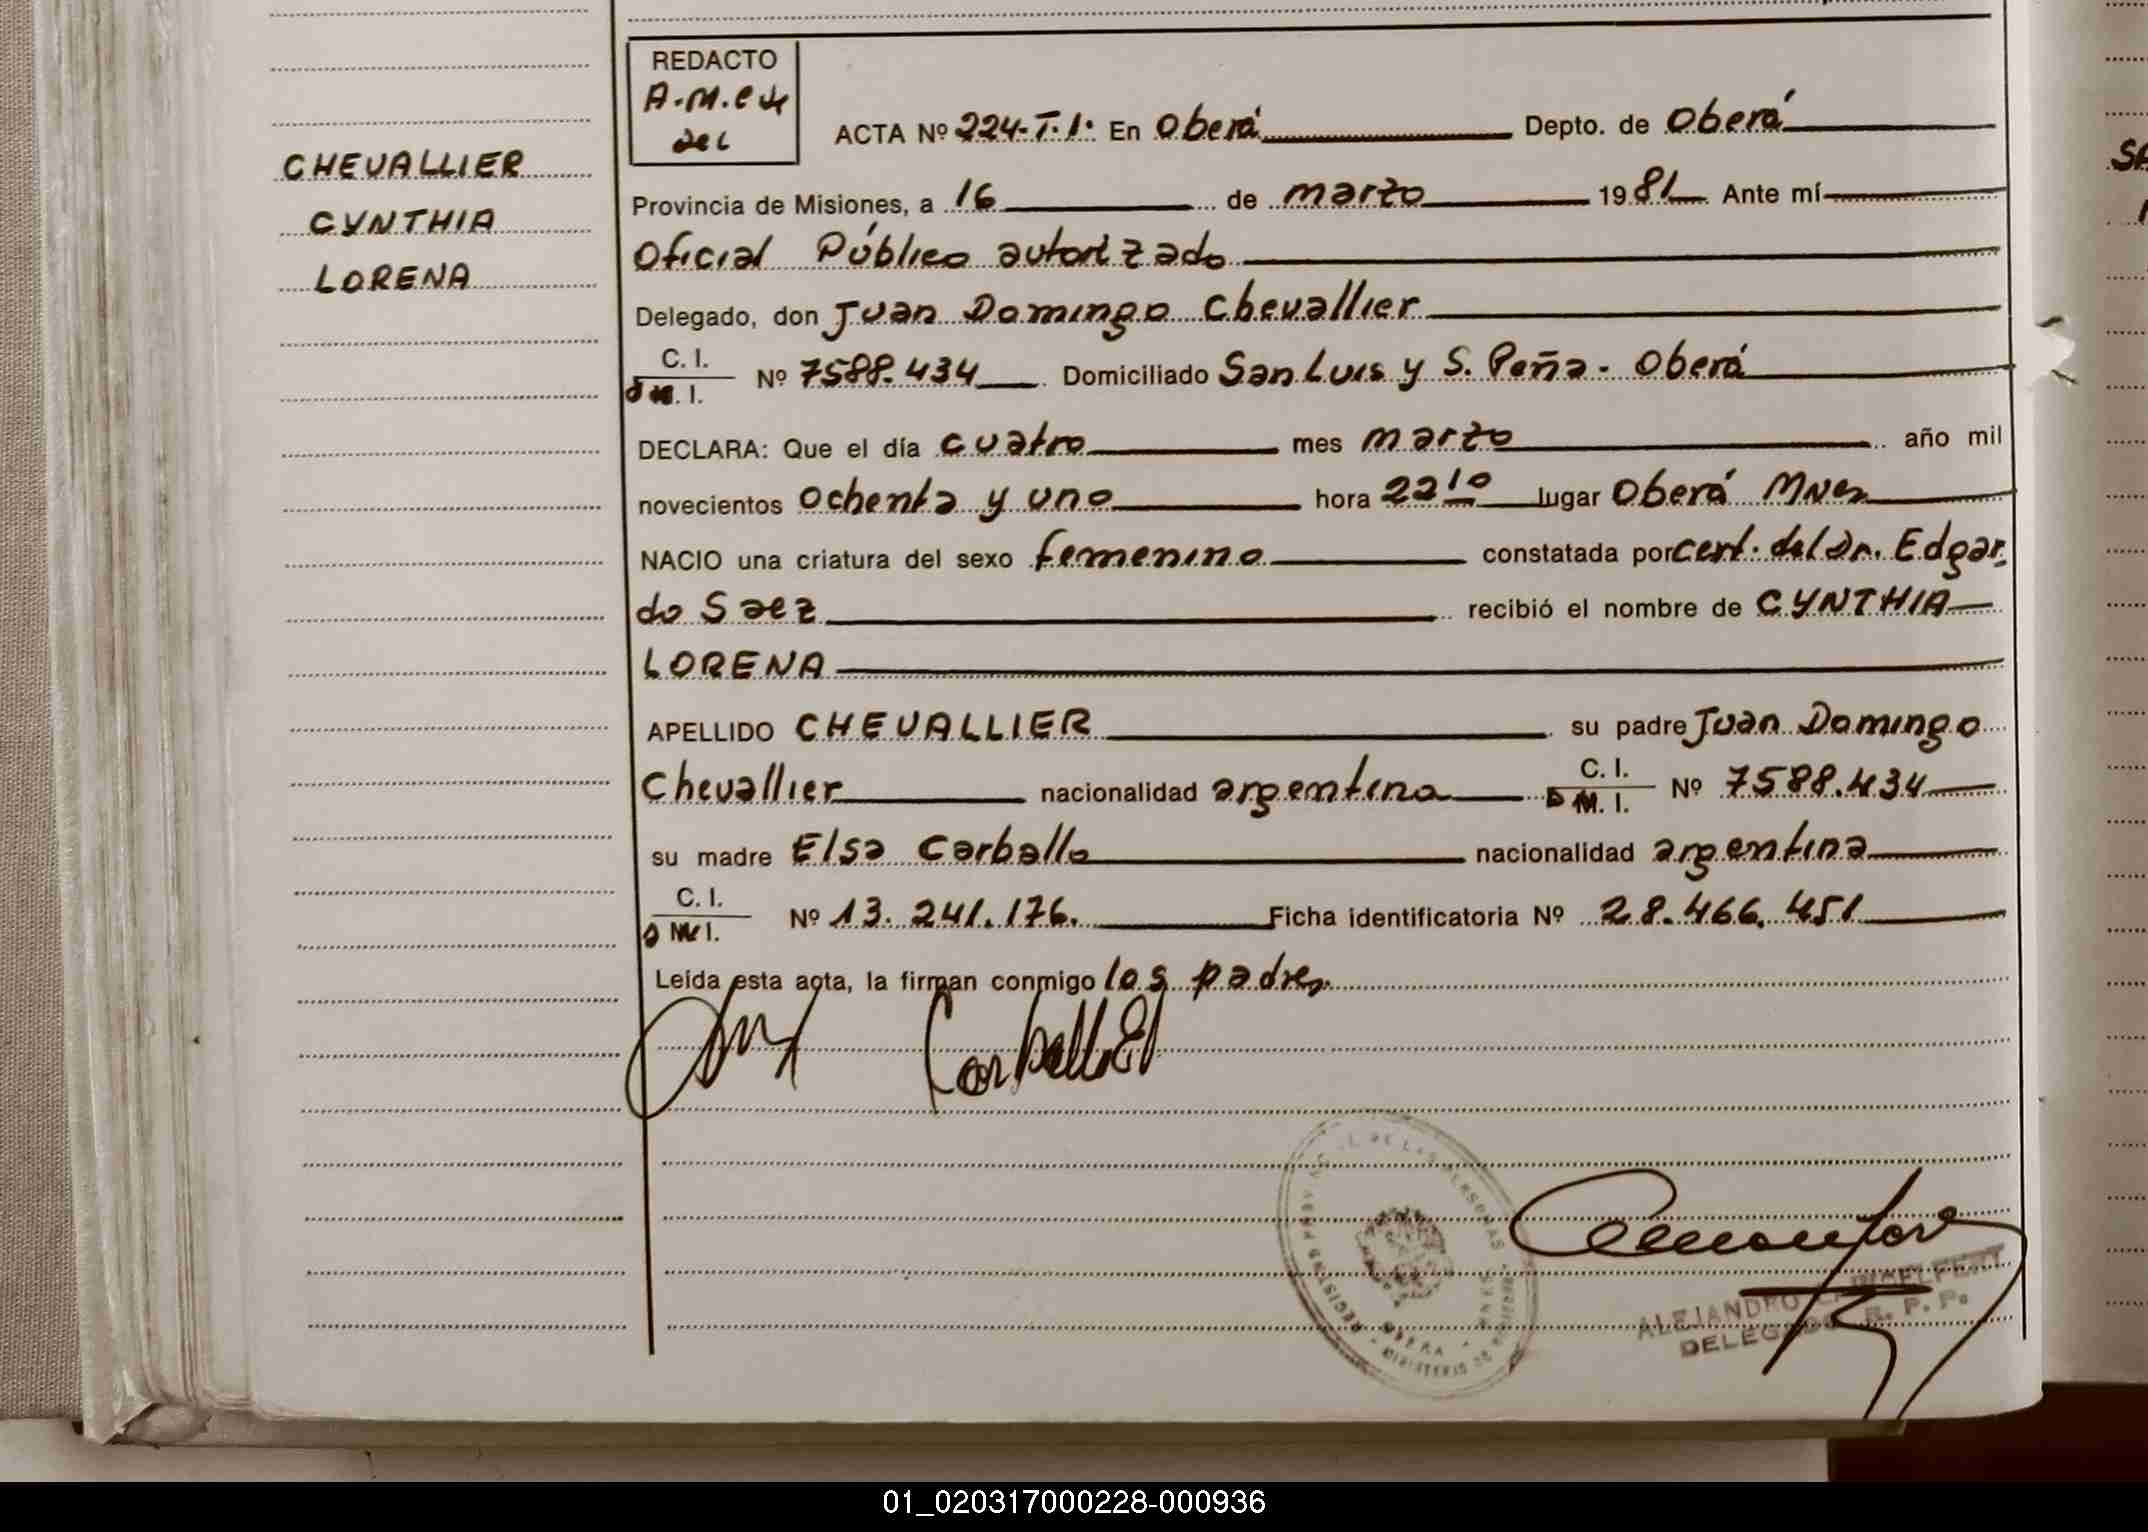 REDACTO
A.M.C de
del
ACTA Nº 224-T.1. En Oberá Depto. de Oberá
CHEVALLIER
CYNTHIA
LORENA
Provincia de Misiones, a 16 de marzo 1981 Ante mí
Oficial Público autorizado
Delegado, don Juan Domingo Chevallier
C. I.
Nº 7588.434 Domiciliado San Luis y S. Peña - Oberá
M. I.
DECLARA: Que el día cuatro mes marzo año mil
novecientos ochenta y uno hora 22 10 lugar Oberá Mnes
NACIO una criatura del sexo femenino constatada por cert. del Dr. Edgar-
do Saez recibió el nombre de CYNTHIA
LORENA
APELLIDO CHEVALLIER su padre Juan Domingo
Chevallier nacionalidad argentina C. I. M. I. Nº 7588.434
su madre Elsa Carballo nacionalidad argentina
C. I.
Nº 13.241.176. Ficha identificatoria Nº 28.466.451
M. I.
Leída esta acta, la firman conmigo los padres
Carballo E
DE LAS PERSONAS
ALEJANDRO
DELEGADO R. P. P.
SA
01_020317000228-000936